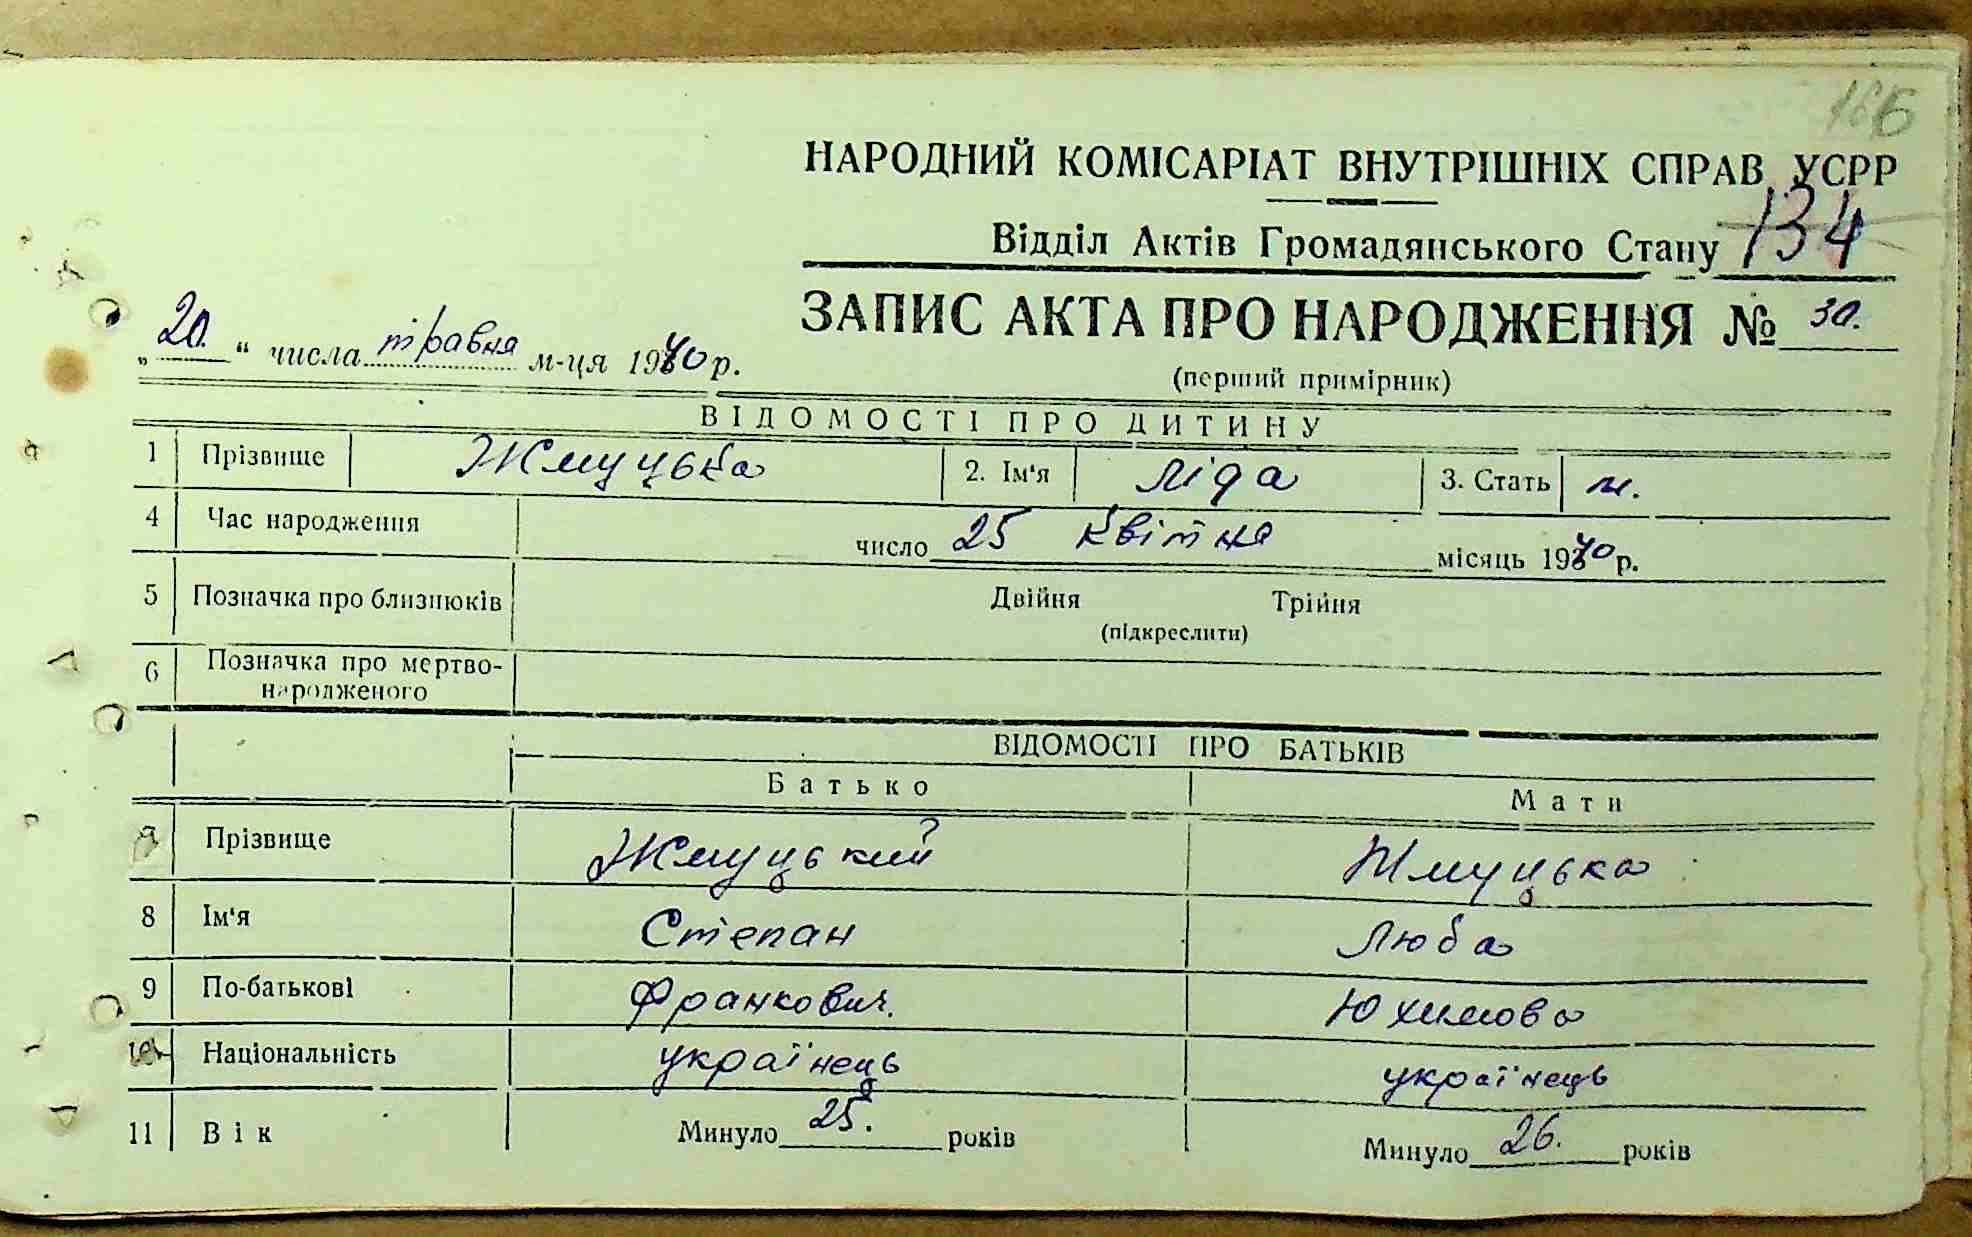 166
НАРОДНИЙ КОМІСАРІАТ ВНУТРІШНІХ СПРАВ УСРР
Відділ Актів Громадянського Стану 134
ЗАПИС АКТА ПРО НАРОДЖЕННЯ № 30.
„20." числа травня м-ця 1940 р.
(перший примірник)
ВІДОМОСТІ ПРО ДИТИНУ
1 Прізвище Жмуцька 2. Ім'я Ліда 3. Стать ж.
4 Час народження число 25 квітня місяць 1940 р.
5 Позначка про близнюків Двійня Трійня
(підкреслити)
6 Позначка про мертво-
народженого
ВІДОМОСТІ ПРО БАТЬКІВ
Батько Мати
7 Прізвище Жмуцький Жмуцька
8 Ім'я Степан Люба
9 По-батькові Франкович. Юхимова
10 Національність українець українець
11 Вік Минуло 25. років Минуло 26. років